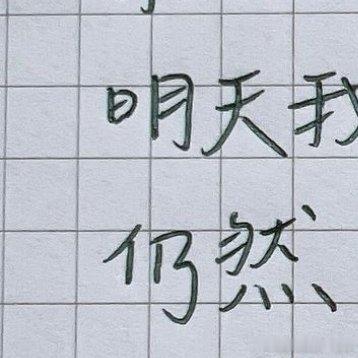 明天我
仍然